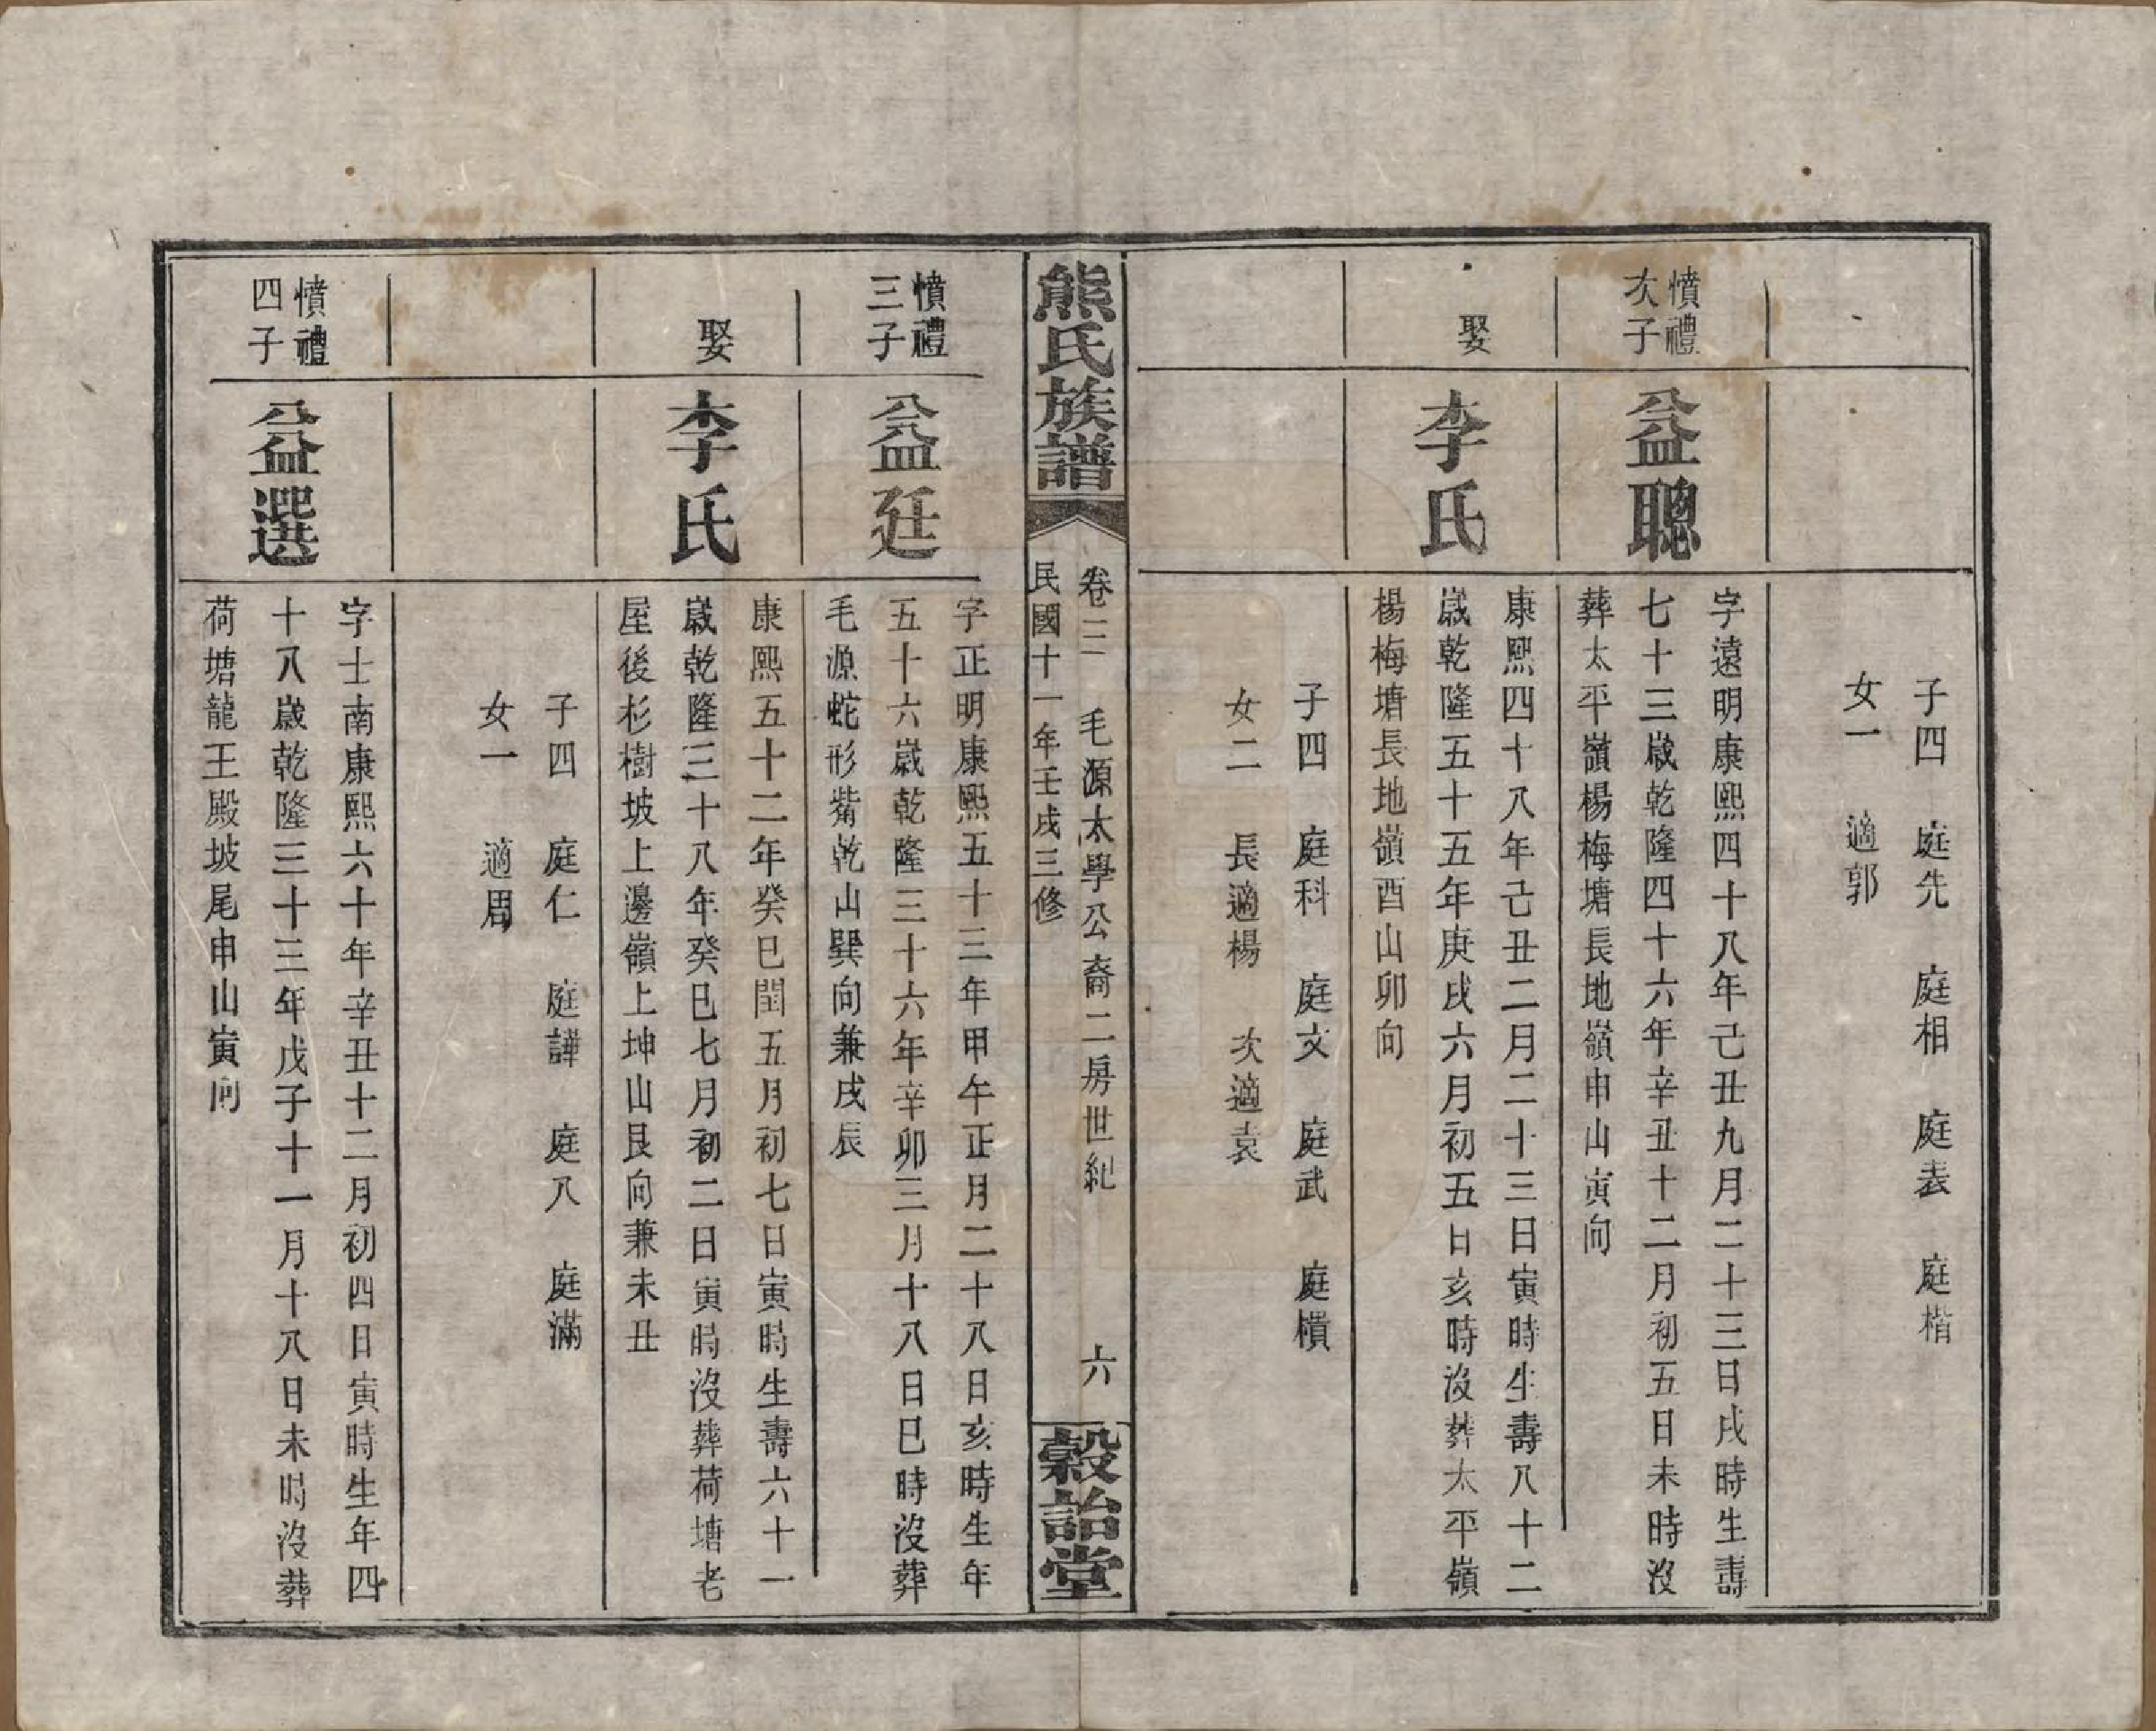 子四 庭先 庭相 庭表 庭楷
女一 適郭
憤禮
次子
益聰
字遠明康熙四十八年己丑九月二十三日戌時生壽
七十三歲乾隆四十六年辛丑十二月初五日未時沒
葬太平嶺楊梅塘長地嶺申山寅向
娶
李氏
康熙四十八年己丑二月二十三日寅時生壽八十二
歲乾隆五十五年庚戌六月初五日亥時沒葬太平嶺
楊梅塘長地嶺酉山卯向
子四 庭科 庭文 庭武 庭樻
女二 長適楊 次適袁
熊氏族譜
卷三 毛源太學公裔二房世紀 六
民國十一年壬戌三修
穀詒堂
憤禮
三子
益廷
字正明康熙五十三年甲午正月二十八日亥時生年
五十六歲乾隆三十六年辛卯三月十八日巳時沒葬
毛源蛇形觜乾山巽向兼戌辰
娶
李氏
康熙五十二年癸巳閏五月初七日寅時生壽六十一
歲乾隆三十八年癸巳七月初二日寅時沒葬荷塘老
屋後杉樹坡上邊嶺上坤山艮向兼未丑
子四 庭仁 庭譁 庭八 庭滿
女一 適周
憤禮
四子
益選
字士南康熙六十年辛丑十二月初四日寅時生年四
十八歲乾隆三十三年戊子十一月十八日未時沒葬
荷塘龍王殿坡尾申山寅向